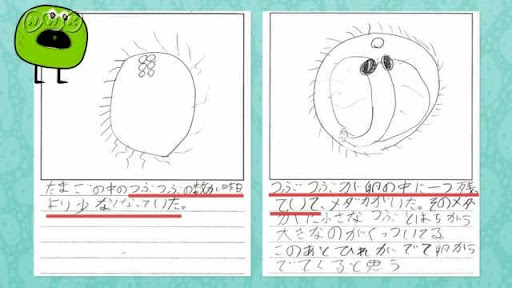 たまごの中のつぶつぶの数が昨日
より少なくなっていた。
つぶつぶが卵の中に一つ残
ていて、メダカがいた。そのメダ
カに小さなつぶとはらから
大きなのがくっついてる
このあとひれがでて卵から
でてくると思う